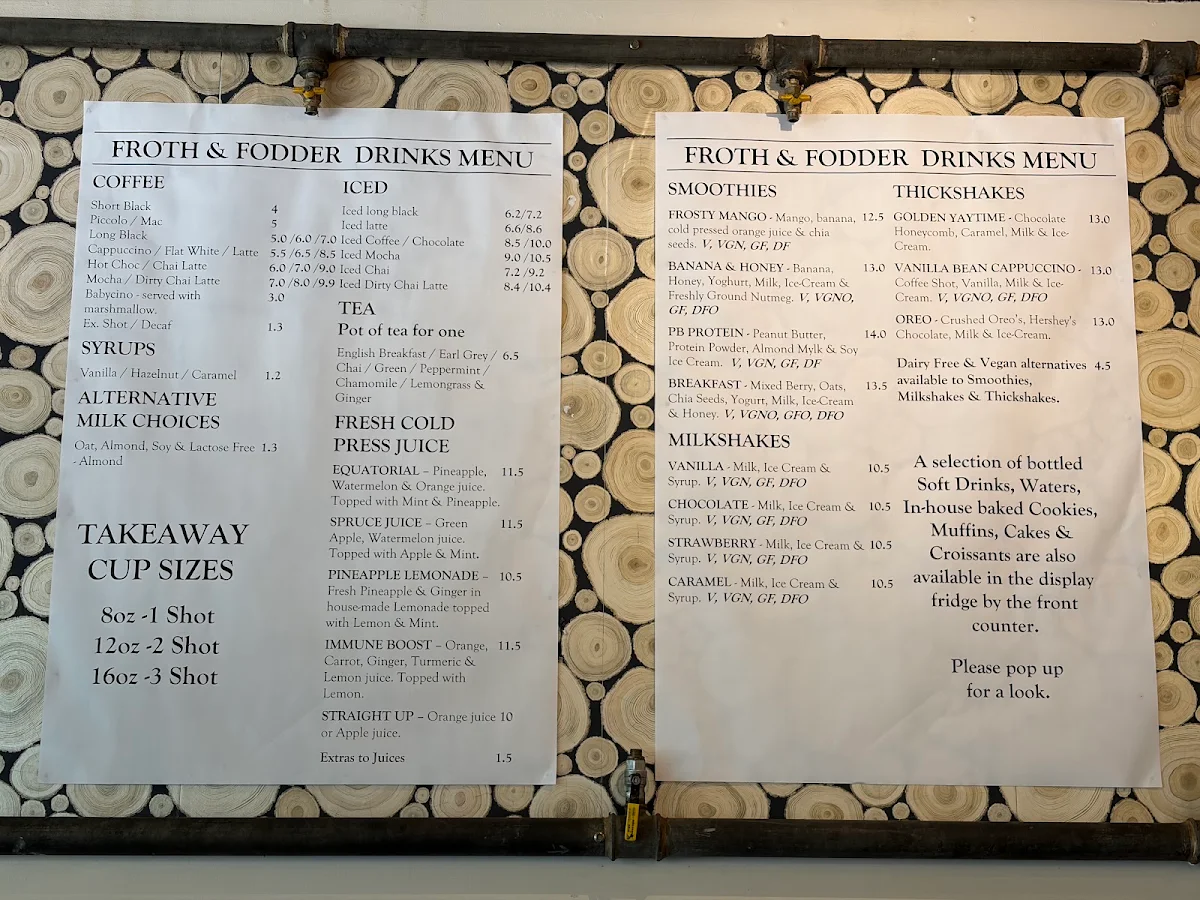 FROTH & FODDER DRINKS MENU
COFFEE
Short Black 4
Piccolo / Mac 5
Long Black 5.0 /6.0 /7.0
Cappuccino / Flat White / Latte 5.5 /6.5 /8.5
Hot Choc / Chai Latte 6.0 /7.0 /9.0
Mocha / Dirty Chai Latte 7.0 /8.0 /9.9
Babycino - served with 3.0
marshmallow.
Ex. Shot / Decaf 1.3
SYRUPS
Vanilla / Hazelnut / Caramel 1.2
ALTERNATIVE
MILK CHOICES
Oat, Almond, Soy & Lactose Free 1.3
- Almond
TAKEAWAY
CUP SIZES
8oz -1 Shot
12oz -2 Shot
16oz -3 Shot
ICED
Iced long black 6.2/7.2
Iced latte 6.6/8.6
Iced Coffee / Chocolate 8.5 /10.0
Iced Mocha 9.0 /10.5
Iced Chai 7.2 /9.2
Iced Dirty Chai Latte 8.4 /10.4
TEA
Pot of tea for one
English Breakfast / Earl Grey / 6.5
Chai / Green / Peppermint /
Chamomile / Lemongrass &
Ginger
FRESH COLD
PRESS JUICE
EQUATORIAL – Pineapple, 11.5
Watermelon & Orange juice.
Topped with Mint & Pineapple.
SPRUCE JUICE – Green 11.5
Apple, Watermelon juice.
Topped with Apple & Mint.
PINEAPPLE LEMONADE – 10.5
Fresh Pineapple & Ginger in
house-made Lemonade topped
with Lemon & Mint.
IMMUNE BOOST – Orange, 11.5
Carrot, Ginger, Turmeric &
Lemon juice. Topped with
Lemon.
STRAIGHT UP – Orange juice 10
or Apple juice.
Extras to Juices 1.5
FROTH & FODDER DRINKS MENU
SMOOTHIES
FROSTY MANGO - Mango, banana, 12.5
cold pressed orange juice & chia
seeds. V, VGN, GF, DF
BANANA & HONEY - Banana, 13.0
Honey, Yoghurt, Milk, Ice-Cream &
Freshly Ground Nutmeg. V, VGNO,
GF, DFO
PB PROTEIN - Peanut Butter, 14.0
Protein Powder, Almond Mylk & Soy
Ice Cream. V, VGN, GF, DF
BREAKFAST - Mixed Berry, Oats, 13.5
Chia Seeds, Yogurt, Milk, Ice-Cream
& Honey. V, VGNO, GFO, DFO
MILKSHAKES
VANILLA - Milk, Ice Cream & 10.5
Syrup. V, VGN, GF, DFO
CHOCOLATE - Milk, Ice Cream & 10.5
Syrup. V, VGN, GF, DFO
STRAWBERRY - Milk, Ice Cream & 10.5
Syrup. V, VGN, GF, DFO
CARAMEL - Milk, Ice Cream & 10.5
Syrup. V, VGN, GF, DFO
THICKSHAKES
GOLDEN YAYTIME - Chocolate 13.0
Honeycomb, Caramel, Milk & Ice-
Cream.
VANILLA BEAN CAPPUCCINO - 13.0
Coffee Shot, Vanilla, Milk & Ice-
Cream. V, VGNO, GF, DFO
OREO - Crushed Oreo's, Hershey's 13.0
Chocolate, Milk & Ice-Cream.
Dairy Free & Vegan alternatives 4.5
available to Smoothies,
Milkshakes & Thickshakes.
A selection of bottled
Soft Drinks, Waters,
In-house baked Cookies,
Muffins, Cakes &
Croissants are also
available in the display
fridge by the front
counter.
Please pop up
for a look.